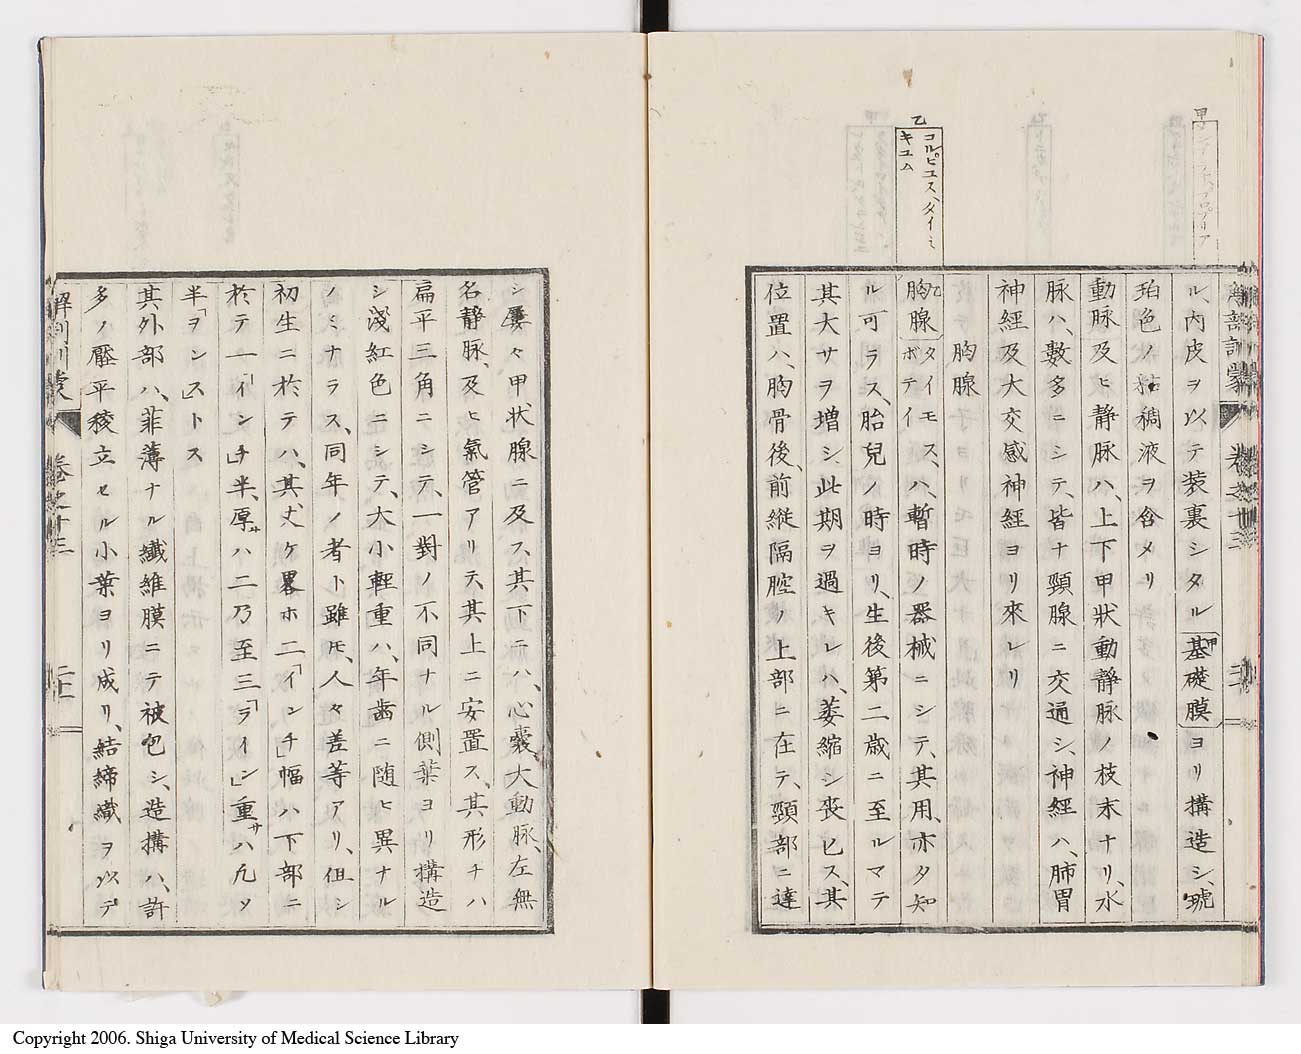 乙
コルピユスタイミ
キユム
解剖訓蒙 卷之十三
ル、内皮ヲ以テ装裏シタル「基礎膜」ヨリ構造シ、琥
珀色ノ粘稠液ヲ含メリ
動脉及ヒ静脉ハ、上下甲狀動静脉ノ枝末ナリ、水
脉ハ、數多ニシテ、皆ナ頸腺ニ交通シ、神經ハ、肺胃
神經及大交感神經ヨリ來レリ
胸腺
胸腺「タイモス、ボデイ」ハ、暫時ノ器械ニシテ、其用、亦タ知
ル可ラス、胎兒ノ時ヨリ、生後第二歳ニ至ルマテ
其大サヲ増シ、此期ヲ過キレハ、萎縮シ喪ヒス、其
位置ハ、胸骨後、前縦隔腔ノ上部ニ在テ、頸部ニ達
シ屡々甲状腺ニ及ス、其下ニハ、心嚢、大動脉、左無
名静脉、及ヒ氣管アリテ、其上ニ安置ス、其形チハ
扁平三角ニシテ、一對ノ不同ナル側葉ヨリ構造
シ淺紅色ニシテ、大小輕重ハ、年齒ニ随ヒ異ナル
ノミナラス、同年ノ者ト雖モ、人々差等アリ、但シ
初生ニ於テハ、其丈ケ畧ホ二「インチ」幅ハ下部ニ
於テ一「インチ」半、厚サハ二乃至三「ライン」重サハ九ソ
半「ヲンストス
其外部ハ、菲薄ナル纎維膜ニテ被包シ、造構ハ、許
多ノ壓平稜立セル小葉ヨリ成リ、結締織ヲ以テ
卷之十三
Copyright 2006. Shiga University of Medical Science Library